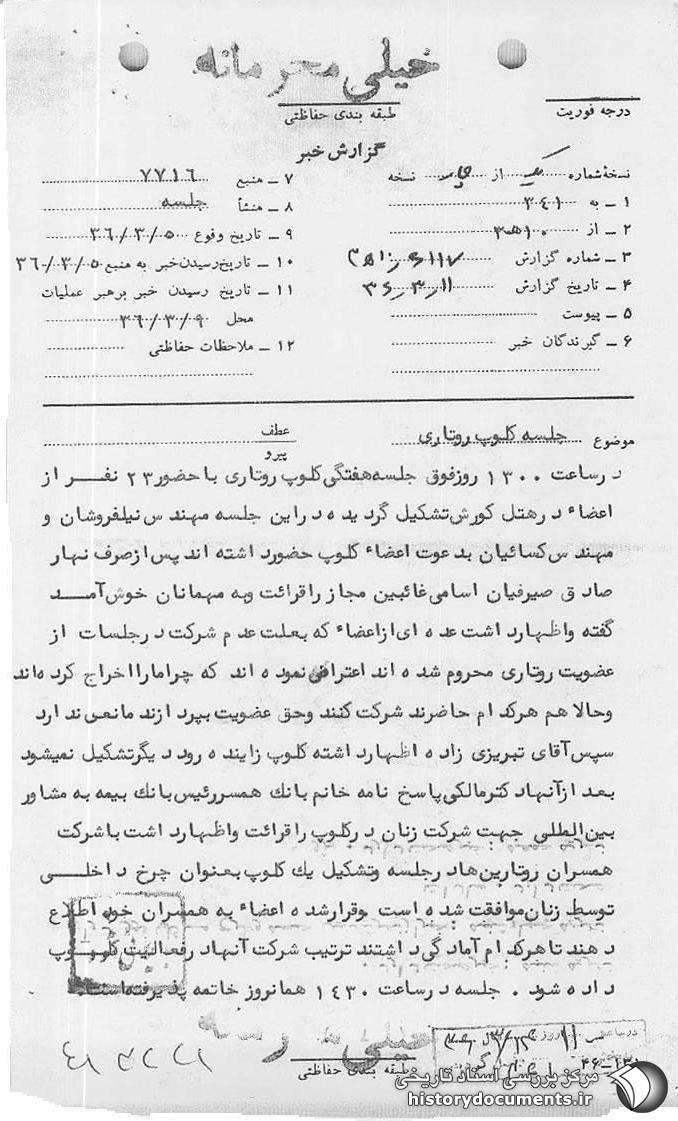 خیلی محرمانه
درجه فوریت
طبقه بندی حفاظتی
گزارش خبر
نسخهٔ شماره یک از نسخه
۱ ـ به ۳۴۱
۲ ـ از ۱۰ هـ ۳
۳ ـ شماره گزارش
۴ ـ تاریخ گزارش ۳۶٫۳٫۱۱
۵ ـ پیوست
۶ ـ گیرندگان خبر
۷ ـ منبع ۷۷۱۶
۸ ـ منشأ جلسه
۹ ـ تاریخ وقوع ۳۶/۳/۵
۱۰ ـ تاریخ رسیدن خبر به منبع ۳۶/۳/۵
۱۱ ـ تاریخ رسیدن خبر برهبر عملیات
محل ۳۶/۳/۹
۱۲ ـ ملاحظات حفاظتی
موضوع جلسه کلوپ روتاری
عطف
پیرو
درساعت ۱۳۰۰ روزفوق جلسه هفتگی کلوپ روتاری با حضور ۲۳ نفر از
اعضاء در هتل کورش تشکیل گردیده در این جلسه مهندس نیلفروشان و
مهندس کسائیان بدعوت اعضاء کلوپ حضور داشته اند پس از صرف نهار
صادق صیرفیان اسامی غائبین مجاز را قرائت و به مهمانان خوش آمد
گفته و اظهار داشت عده ای از اعضاء که بعلت عدم شرکت در جلسات از
عضویت روتاری محروم شده اند اعتراض نموده اند که چرا ما را اخراج کرده اند
و حالا هم هر کدام حاضرند شرکت کنند و حق عضویت بپردازند مانعی ندارد
سپس آقای تبریزی زاده اظهار داشته کلوپ زاینده رود دیگر تشکیل نمیشود
بعد از آنها دکتر مالکی پاسخ نامه خانم بانک همسر رئیس بانک بیمه به مشاور
بین المللی جهت شرکت زنان در کلوپ را قرائت و اظهار داشت با شرکت
همسران روتارین ها در جلسه و تشکیل یک کلوپ بعنوان چرخ داخلی
توسط زنان موافقت شده است و قرار شده اعضاء به همسران خود اطلاع
دهند تا هر کدام آمادگی داشتند ترتیب شرکت آنها در فعالیت کلوپ
داده شود . جلسه در ساعت ۱۴۳۰ همان روز خاتمه پذیرفته است .
خیلی محرمانه
طبقه بندی حفاظتی
مرکز بررسی اسناد تاریخی
historydocuments.ir